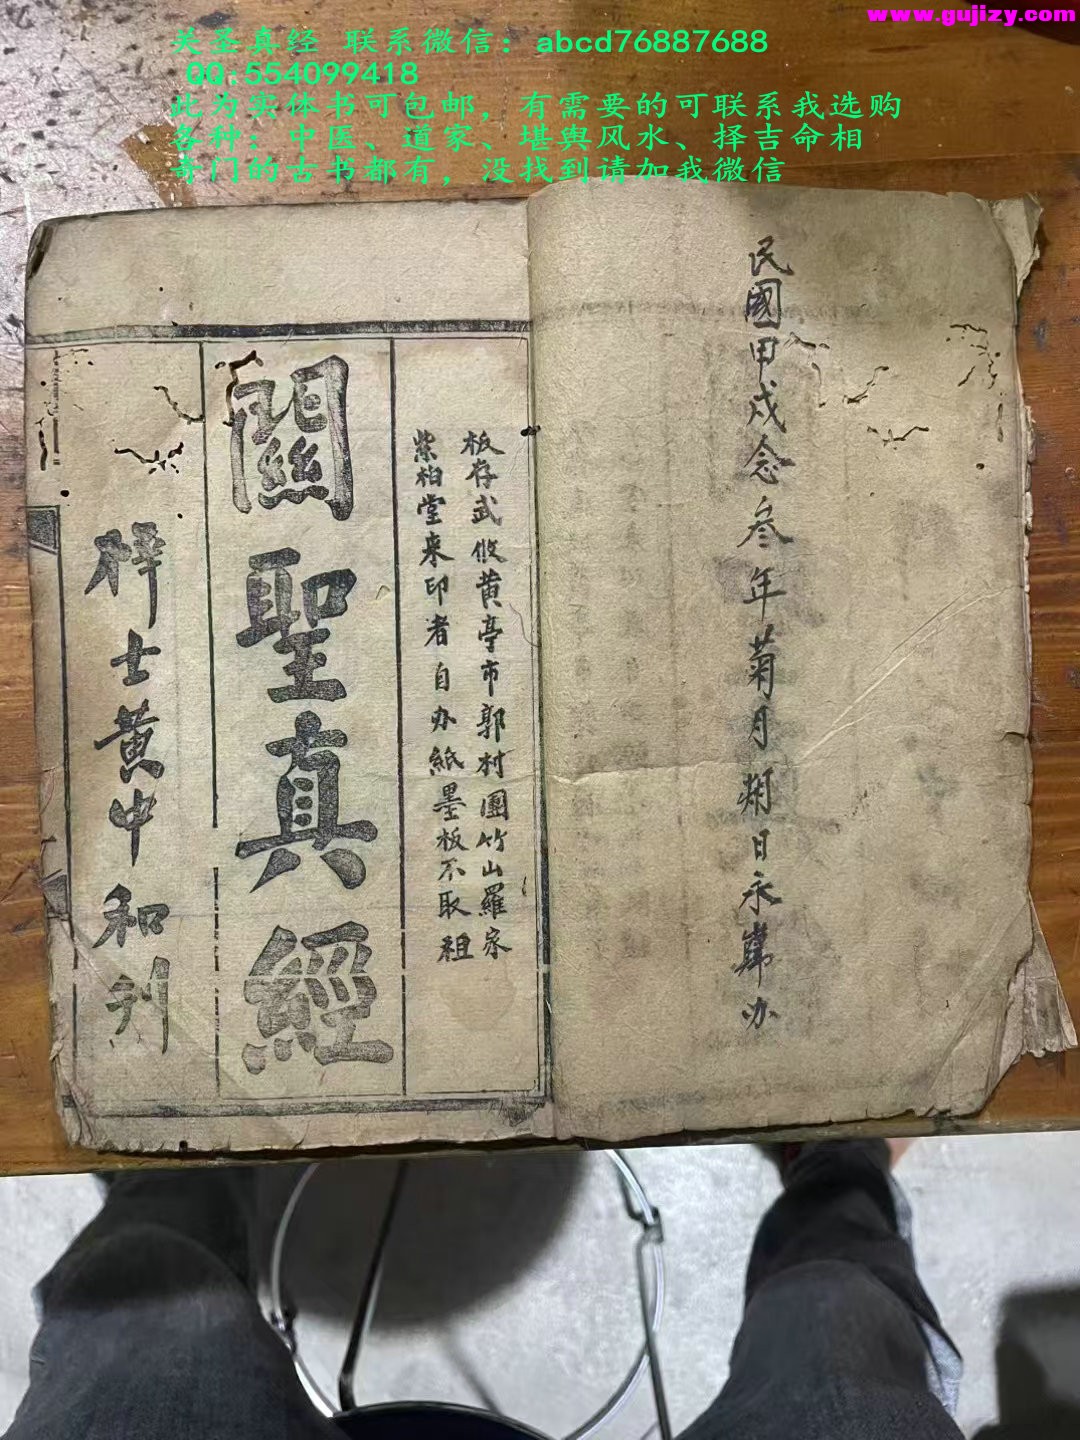 www.gujizy.com
关圣真经 联系微信：abcd76887688
QQ:554099418
此为实体书可包邮，有需要的可联系我选购
各种：中医、道家、堪舆风水、择吉命相
奇门的古书都有，没找到请加我微信
民國甲戍念叁年菊月朔日永㠯办
板存武攸黄亭市郭村團竹山羅家
紫柏堂来印者自办紙墨板不取祖
關聖真經
梓士黄中和刋